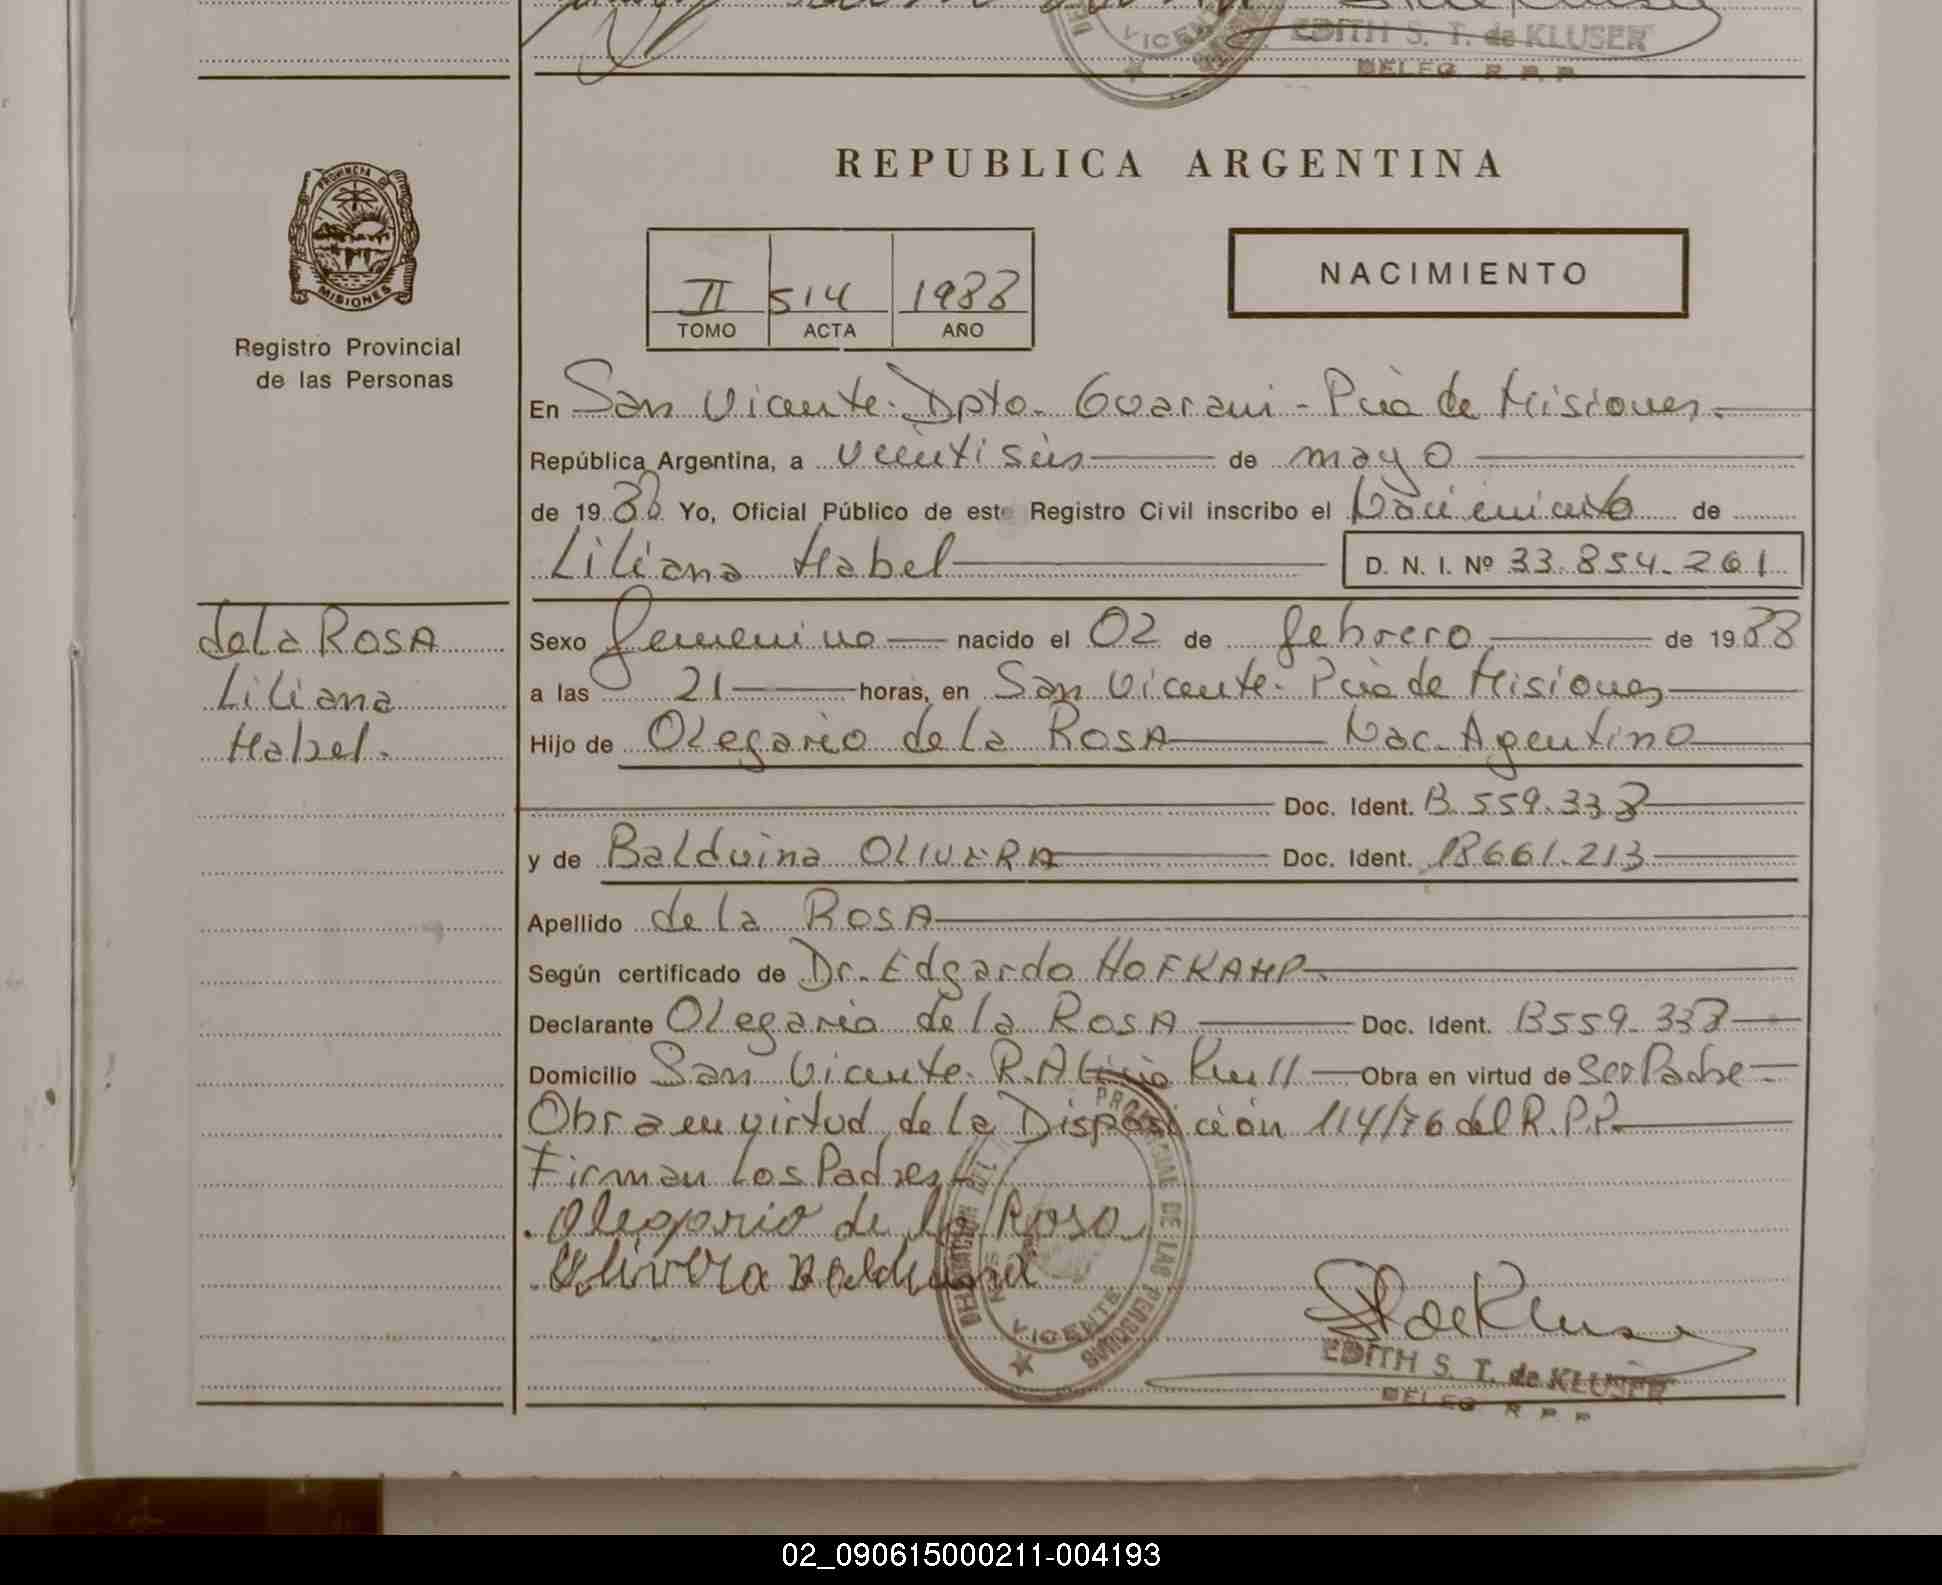 EDITH S. T. de KLUSER
DELEG R. P. P.
REPUBLICA ARGENTINA
PROVINCIA DE
MISIONES
Registro Provincial
de las Personas
II 514 1988
TOMO ACTA AÑO
NACIMIENTO
En San Vicente. Dpto. Guarani - Pcia de Misiones.
República Argentina, a veintiseis de mayo
de 1988 Yo, Oficial Público de este Registro Civil inscribo el Nacimiento de
Liliana Mabel D. N. I. Nº 33.854.261
de la ROSA
Liliana
Mabel.
Sexo femenino nacido el 02 de febrero de 1988
a las 21 horas, en San Vicente. Pcia de Misiones
Hijo de Olegario de la ROSA Nac. Agentino
Doc. Ident. 8.559.338
y de Balduina OLIVERA Doc. Ident. 18661.213
Apellido de la ROSA
Según certificado de Dr. Edgardo HOFKAMP.
Declarante Olegario de la ROSA Doc. Ident. 8559.338
Domicilio San Vicente. R. Alicia Obra en virtud de Ser Padre
Obra en virtud de la Disposición 114/76 del R.P.P.
Firman los Padres
Olegario de la Rosa
Olivera Balduina
DELEGACION DEL PROVINCIAL DE LAS PERSONAS
VICENTE
EDITH S. T. de KLUSER
DELEG R P P
02_090615000211-004193